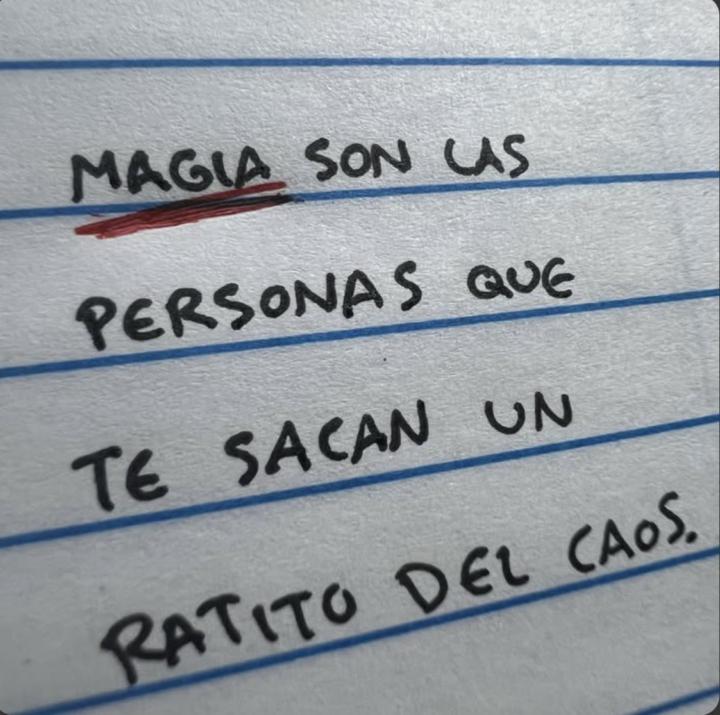 MAGIA SON LAS
PERSONAS QUE
TE SACAN UN
RATITO DEL CAOS.